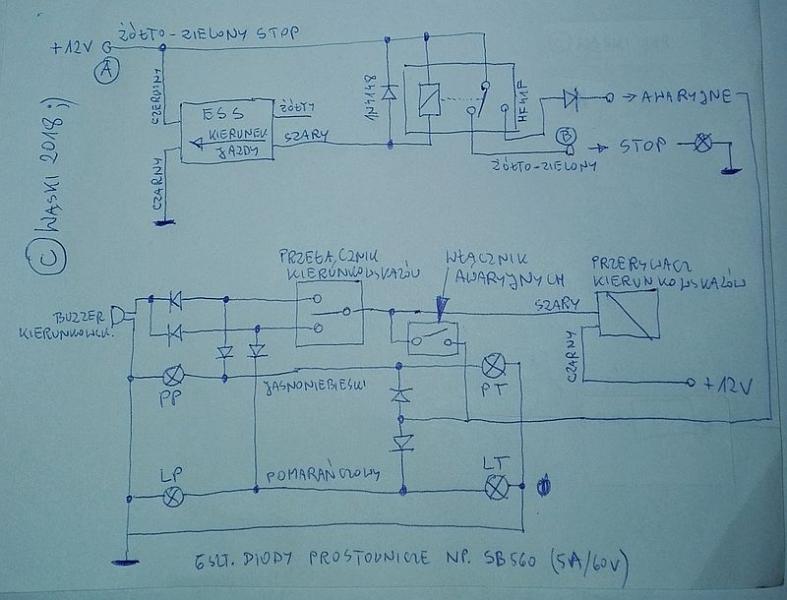 +12V ŻÓŁTO-ZIELONY STOP
A
CZERWONY
ESS
ŻÓŁTY
KIERUNEK
JAZDY
SZARY
CZARNY
1N4148
HF41F
→ AWARYJNE
B
→ STOP
ŻÓŁTO-ZIELONY
© WĄSKI 2018 ;)
PRZEŁĄCZNIK
KIERUNKOWSKAZÓW
WŁĄCZNIK
AWARYJNYCH
PRZERYWACZ
KIERUNKOWSKAZÓW
SZARY
CZARNY
+12V
BUZZER
KIERUNKOWSK.
PP
JASNONIEBIESKI
PT
LP
POMARAŃCZOWY
LT
6SZT. DIODY PROSTOWNICZE NP. SB560 (5A/60V)